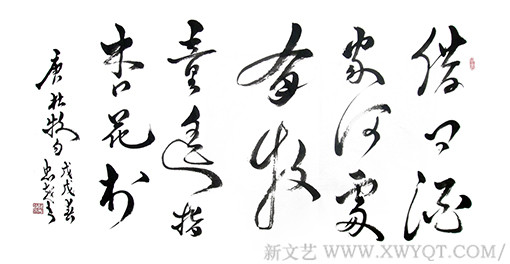 借问酒
家何處
有牧
童遥指
杏花村
唐杜牧句
戊戌春
新文艺 WWW.XWYQT.COM/